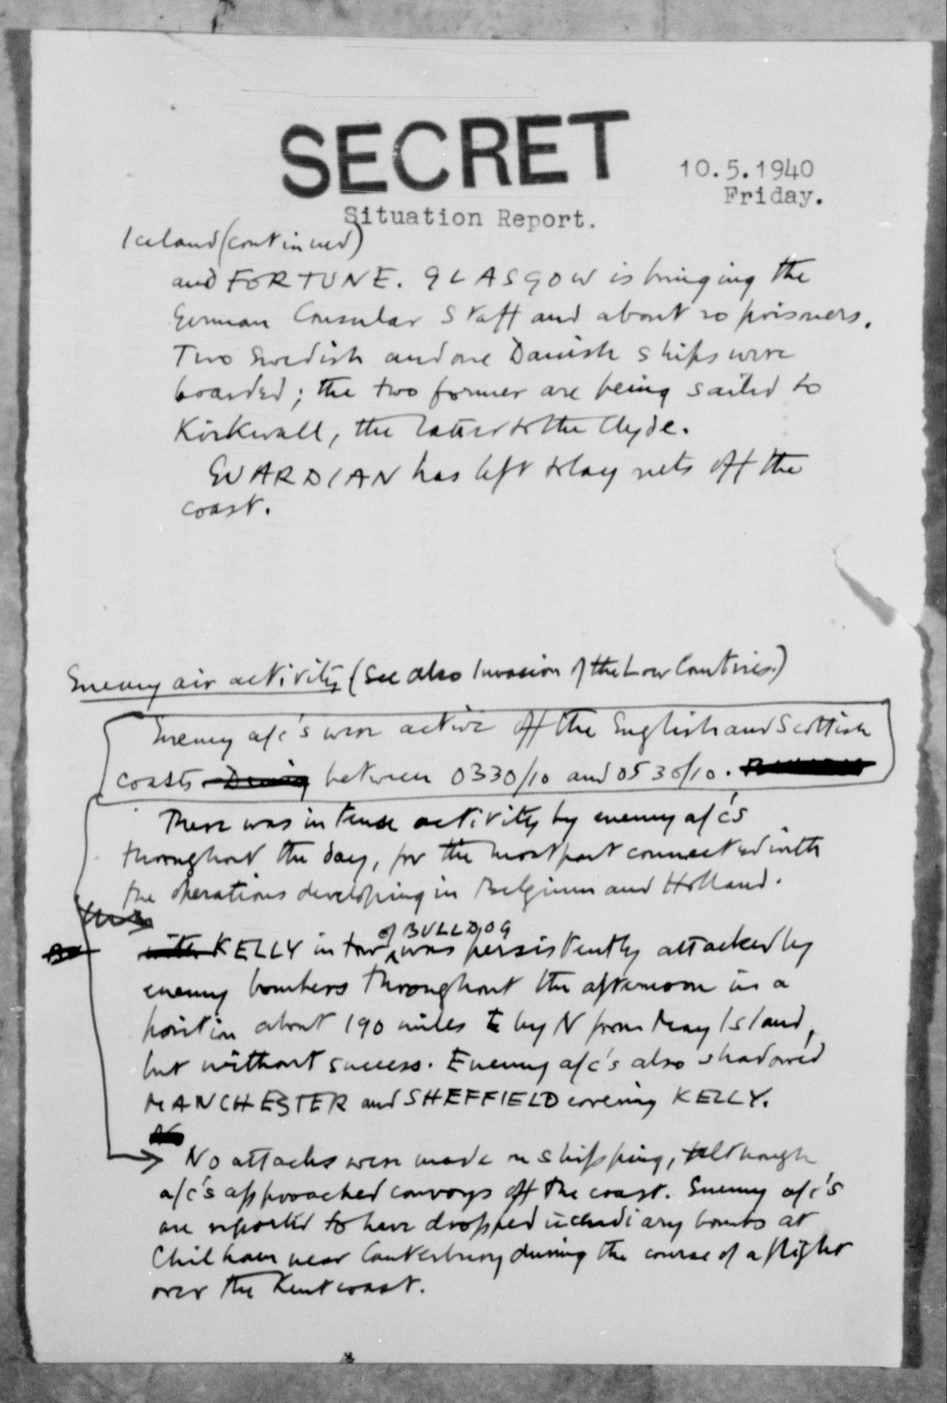 SECRET
10.5.1940
Friday.
Situation Report.
Iceland (continued)
and FORTUNE. GLASGOW is bringing the
German Consular Staff and about 20 prisoners.
Two Swedish and one Danish ships were
boarded; the two former are being sailed to
Kirkwall, the latter to the Clyde.
GUARDIAN has left to lay nets off the
coast.
Enemy air activity (See also Invasion of the Low Countries.)
Enemy a/c's were active off the English and Scottish
coasts During between 0330/10 and 0530/10.
There was intense activity by enemy a/c's
throughout the day, for the most part connected with
the operations developing in Belgium and Holland.
of BULLDOG
with KELLY in tow was persistently attacked by
enemy bombers throughout the afternoon in a
position about 190 miles E by N from May Island,
but without success. Enemy a/c's also shadowed
MANCHESTER and SHEFFIELD covering KELLY.
No
No attacks were made on shipping, although
a/c's approached convoys off the coast. Enemy a/c's
are reported to have dropped incendiary bombs at
Chilham near Canterbury during the course of a flight
over the Kent coast.